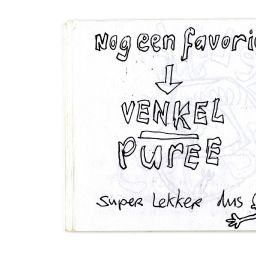 Nog een favori
VENKEL
PUREE
Super Lekker dus